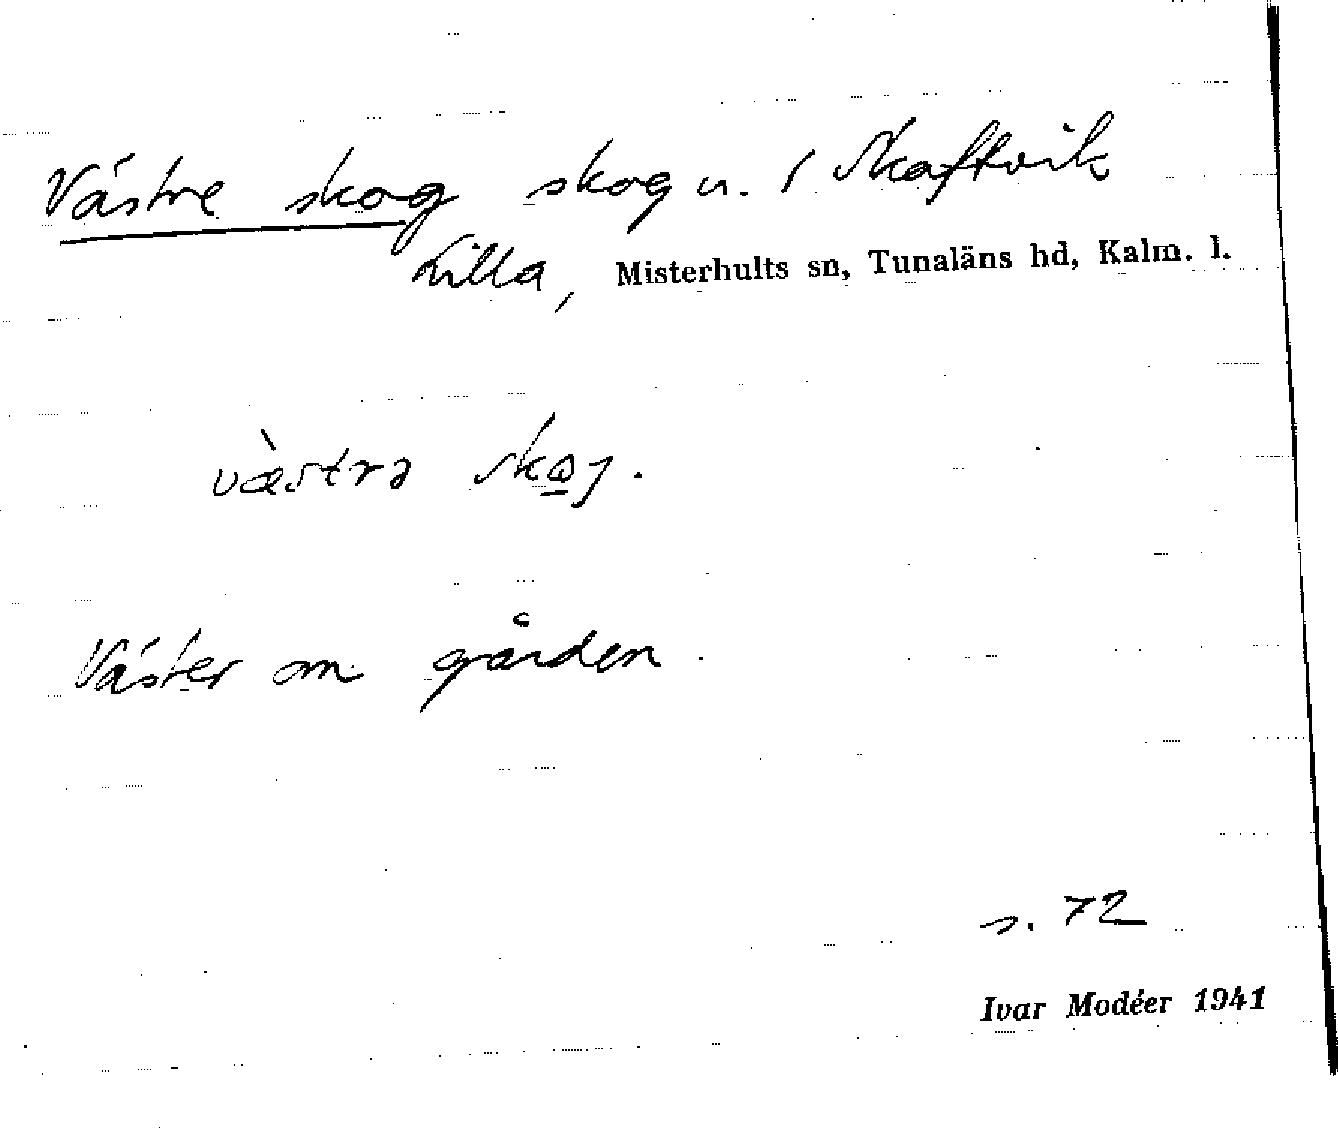 Västre skog skog u. / Skaftvik
Lilla, Misterhults sn, Tunaläns hd, Kalm. l.
væ̀strə skǫg.
Väster om gården.
s. 72
Ivar Modéer 1941